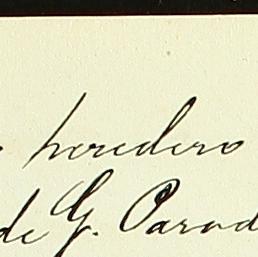 heredero
de G. Parod